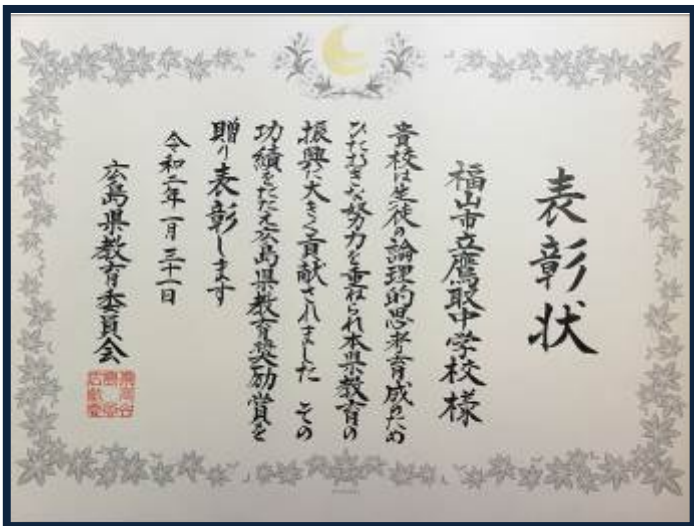 表彰状
福山市立鷹取中学校様
貴校は生徒の論理的思考育成のため
ひたむきな努力を重ねられ本県教育の
振興に大きく貢献されました その
功績をたたえ広島県教育奨励賞を
贈り表彰します
令和二年一月三十一日
広島県教育委員会